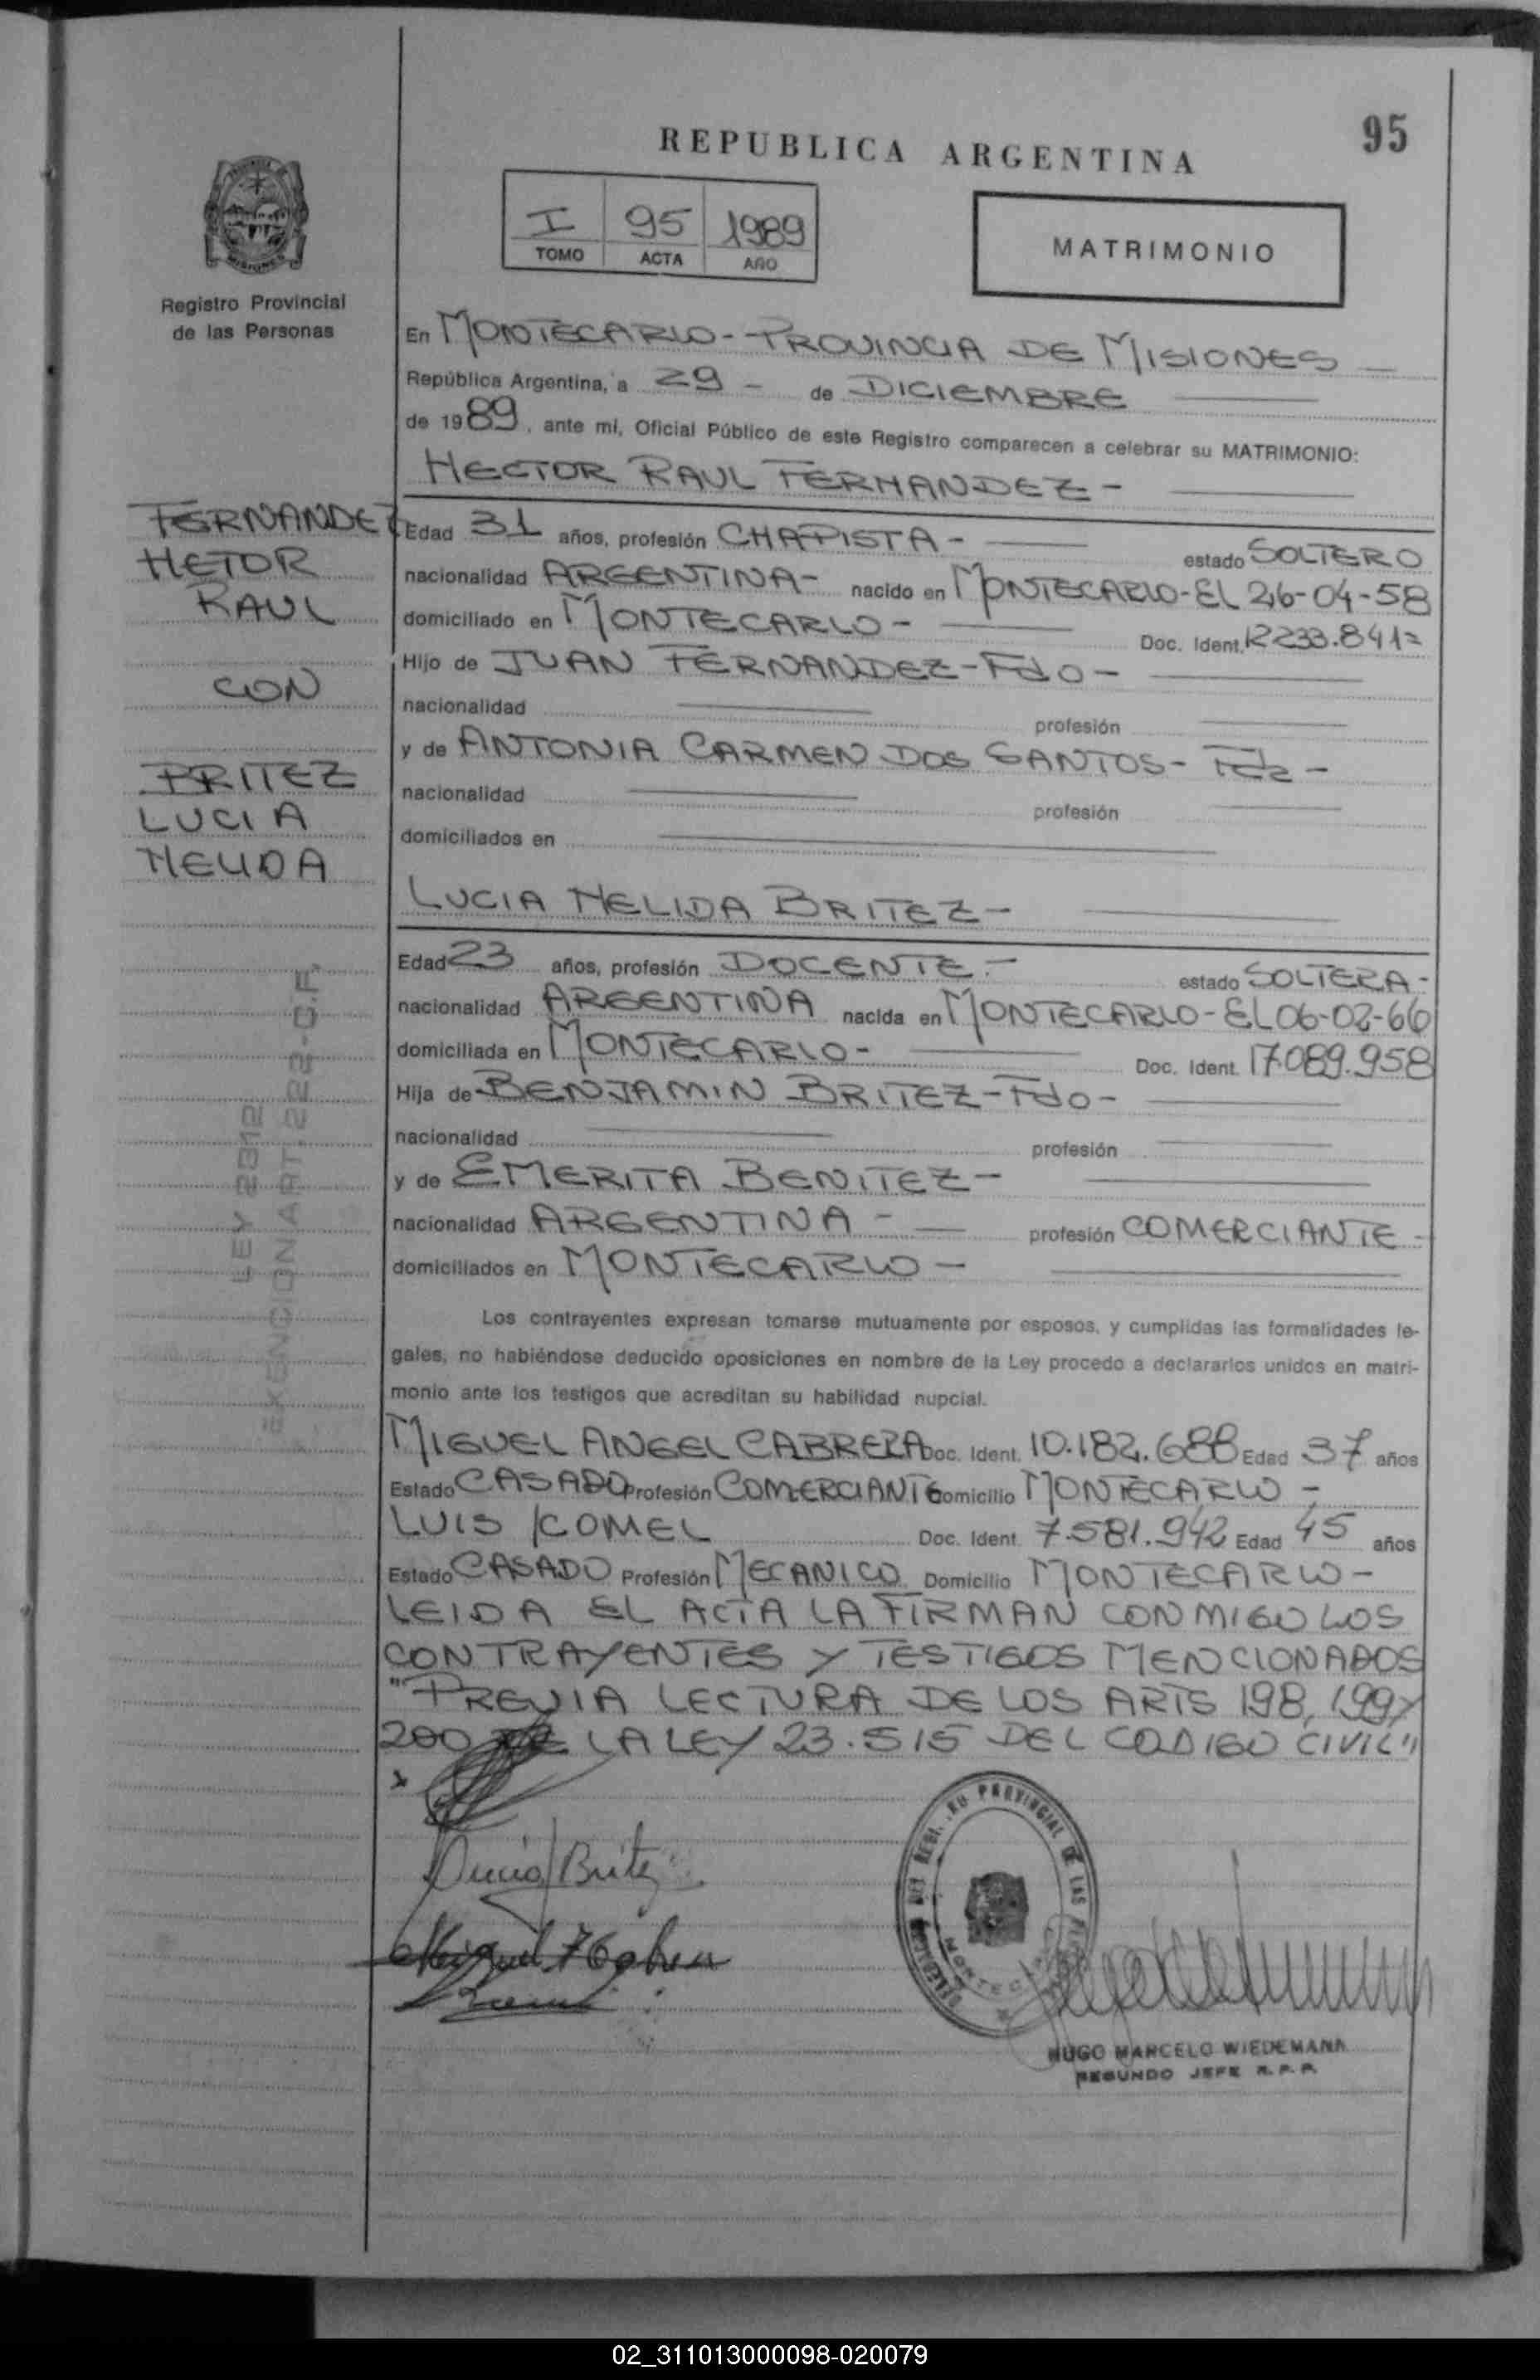 95
REPUBLICA ARGENTINA
I 95 1989
TOMO ACTA AÑO
MATRIMONIO
MISIONES
Registro Provincial
de las Personas
En MONTECARLO - PROVINCIA DE MISIONES
República Argentina, a 29 - de DICIEMBRE
de 1989, ante mí, Oficial Público de este Registro comparecen a celebrar su MATRIMONIO:
HECTOR RAUL FERNANDEZ -
FERNANDEZ
HETOR
RAUL
CON
BRITEZ
LUCIA
NELIDA
LEY 2312
EXENCION ART. 222 - C.F.
Edad 31 años, profesión CHAPISTA - estado SOLTERO
nacionalidad ARGENTINA - nacido en MONTECARLO - EL 26-04-58
domiciliado en MONTECARLO - Doc. Ident. 12.233.841=
Hijo de JUAN FERNANDEZ - Fdo -
nacionalidad profesión
y de ANTONIA CARMEN DOS SANTOS - Fda -
nacionalidad profesión
domiciliados en
LUCIA NELIDA BRITEZ -
Edad 23 años, profesión DOCENTE. - estado SOLTERA -
nacionalidad ARGENTINA nacida en MONTECARLO - EL 06-02-66
domiciliada en MONTECARLO - Doc. Ident. 17.089.958
Hija de BENJAMIN BRITEZ - Fdo -
nacionalidad profesión
y de EMERITA BENITEZ -
nacionalidad ARGENTINA - profesión COMERCIANTE -
domiciliados en MONTECARLO -
Los contrayentes expresan tomarse mutuamente por esposos, y cumplidas las formalidades le-
gales, no habiéndose deducido oposiciones en nombre de la Ley procedo a declararlos unidos en matri-
monio ante los testigos que acreditan su habilidad nupcial.
MIGUEL ANGEL CABRERA Doc. Ident. 10.182.688 Edad 37 años
Estado CASADO Profesión COMERCIANTE Domicilio MONTECARLO -
LUIS KOMEL Doc. Ident. 7.581.942 Edad 45 años
Estado CASADO Profesión MECANICO Domicilio MONTECARLO -
LEIDA EL ACTA LA FIRMAN CONMIGO LOS
CONTRAYENTES Y TESTIGOS MENCIONADOS
"PREVIA LECTURA DE LOS ARTS 198, 199 Y
200 DE LA LEY 23.515 DEL CODIGO CIVIL"
x
Lucia Britez
PROVINCIAL DE LAS
HUGO MARCELO WIEDEMANN
SEGUNDO JEFE R.P.P.
02_311013000098-020079